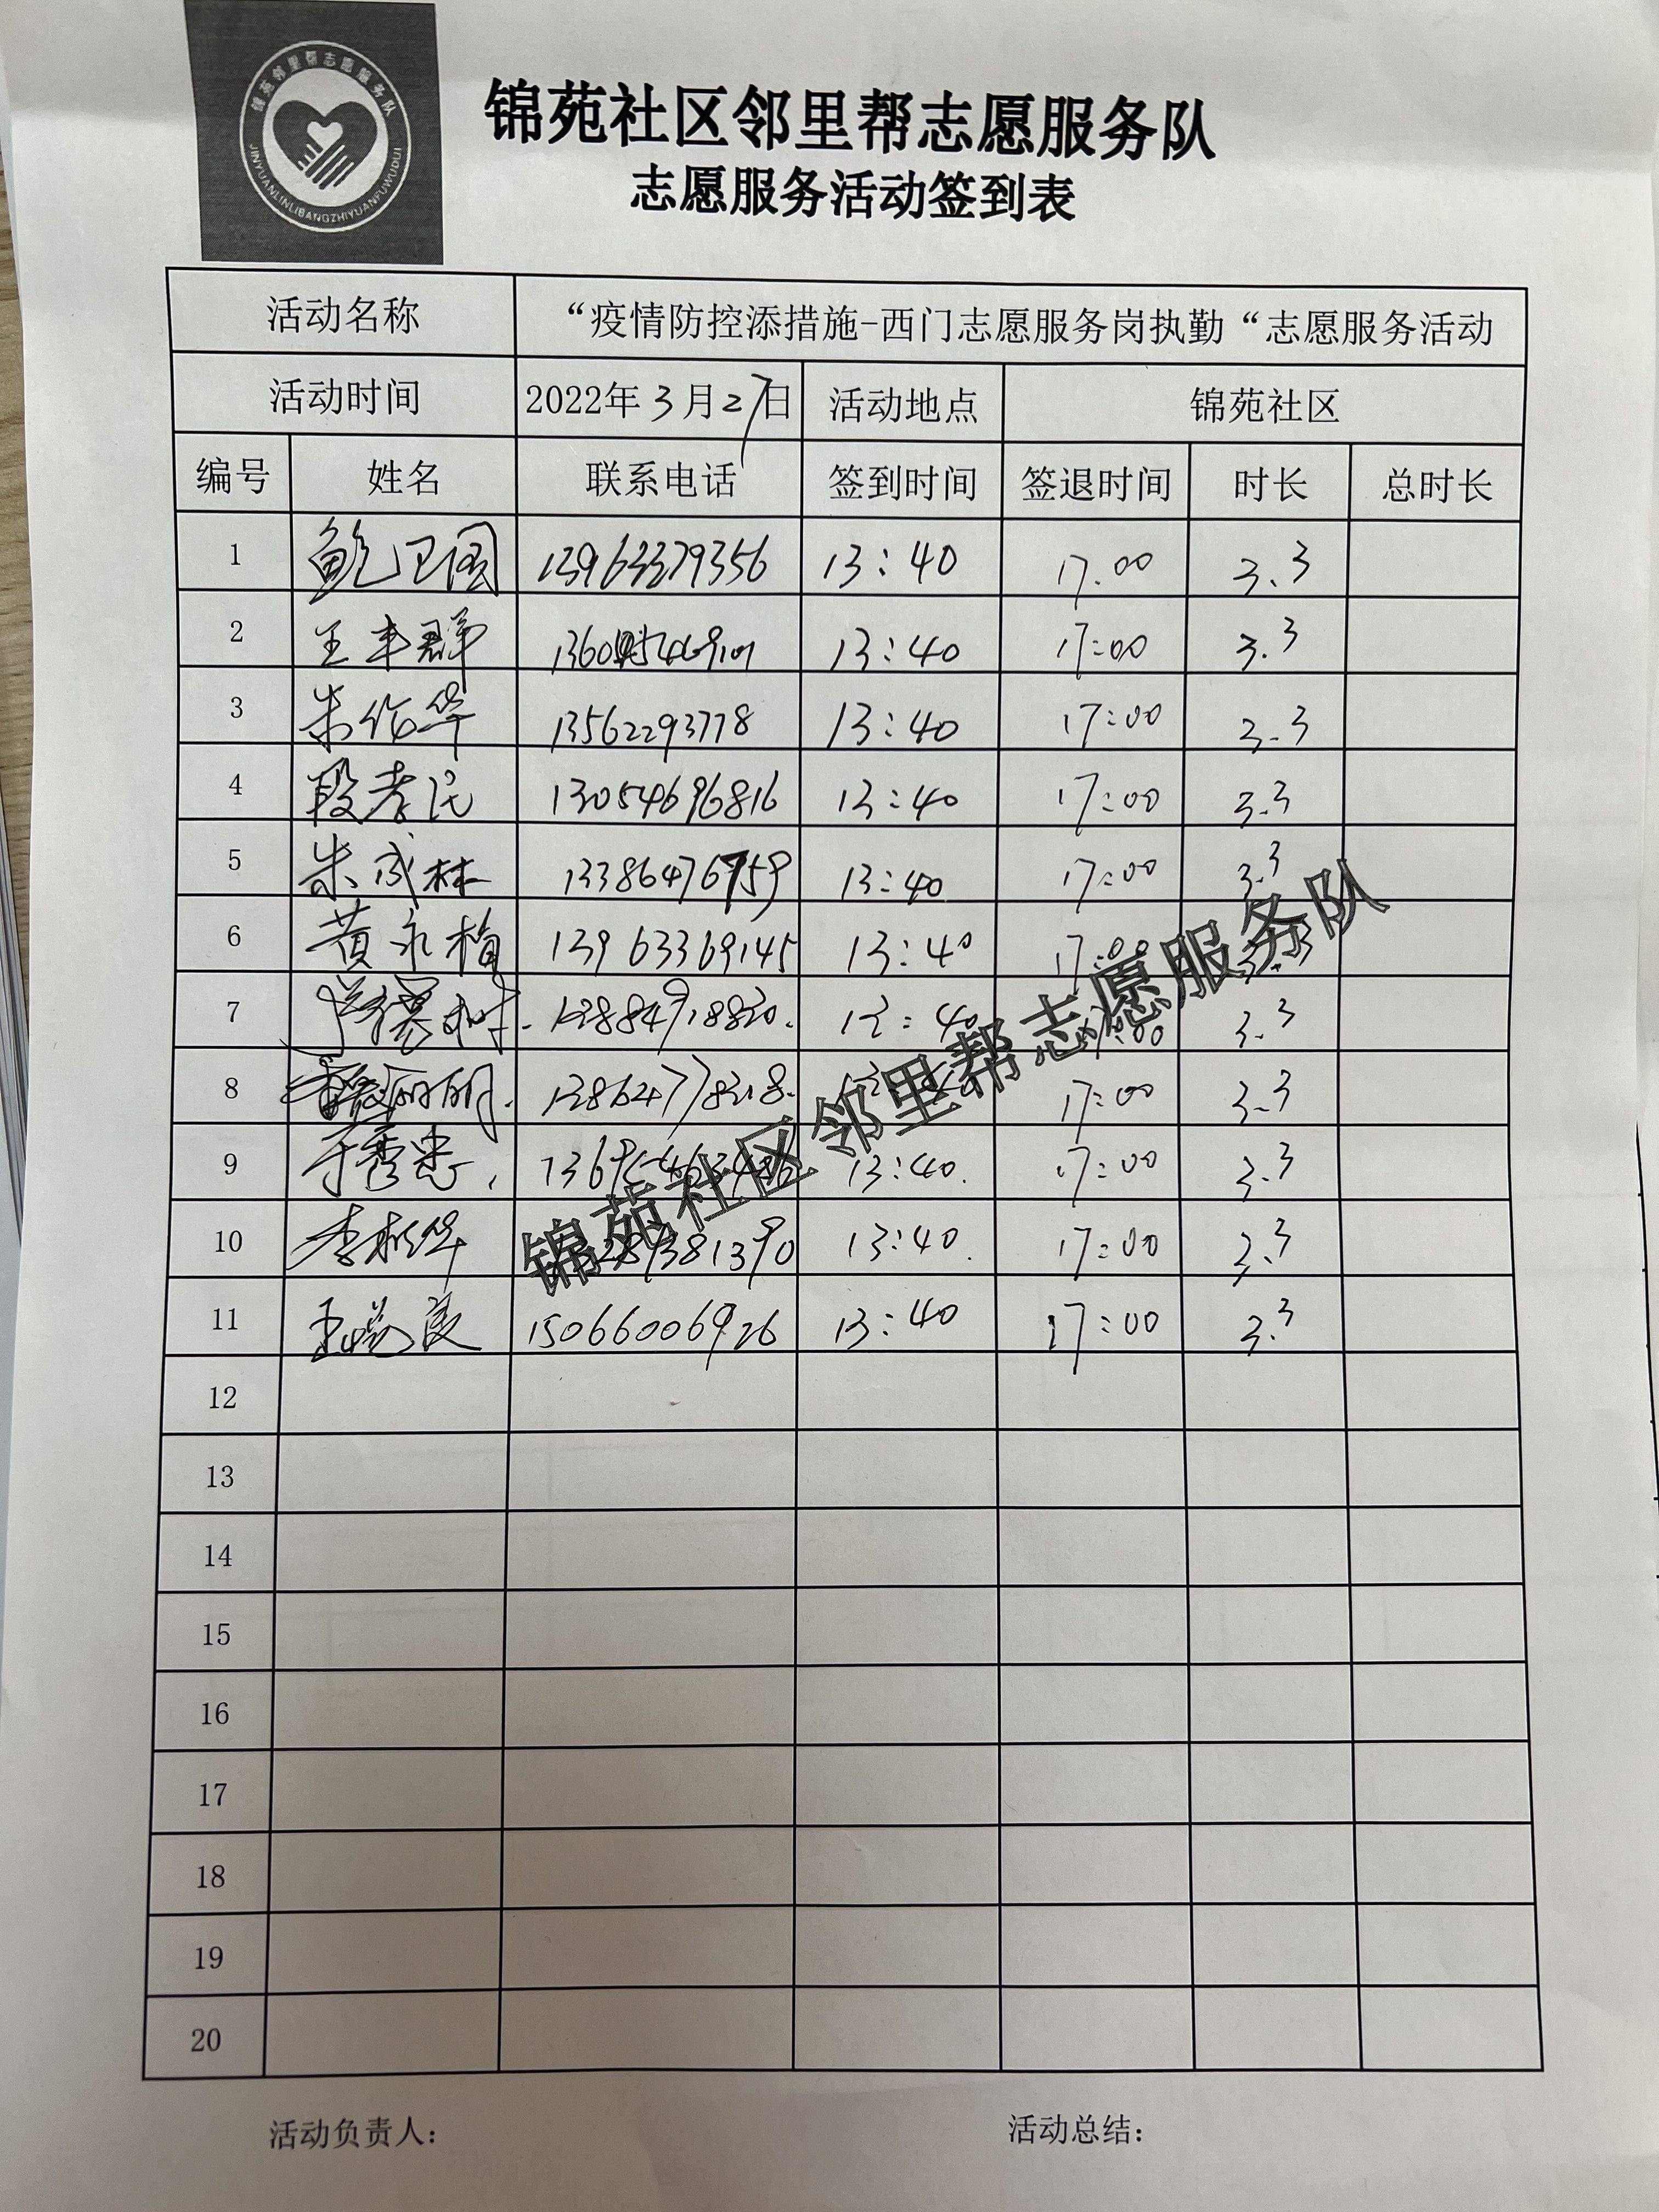 锦苑邻里帮志愿服务队
JINYUANLINLIBANGZHIYUANFUWUDUI
锦苑社区邻里帮志愿服务队
志愿服务活动签到表
活动名称 “疫情防控添措施-西门志愿服务岗执勤“志愿服务活动
活动时间 2022年3月27日 活动地点 锦苑社区
编号 姓名 联系电话 签到时间 签退时间 时长 总时长
1 鲍卫国 13963379356 13:40 17.00 3.3
2 王丰群 13:40 17:00 3.3
3 朱作华 13562293778 13:40 17:00 3.3
4 段孝民 13054696816 13:40 17:00 3.3
5 朱成林 13386476759 13:40 17:00 3.3
6 黄永梅 13963369145 13:40 17:00 3.3
7 13:40 17:00 3.3
8 13864778218 17:00 3.3
9 于秀忠 13:40. 17:00 3.3
10 李桂华 13:40. 17:00 3.3
11 15066006926 13:40 17:00 3.3
12
13
14
15
16
17
18
19
20
锦苑社区邻里帮志愿服务队
活动负责人： 活动总结：